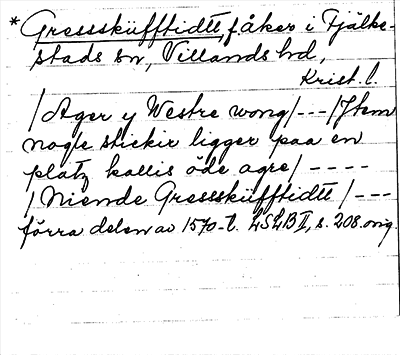 * Gressskiifftidtt, f åker i Fjälke-
stads sn, Villands hd,
Krist. l.
/ Ager y Westre wong / - - - / Jtem
nogle stickir ligger paa en
platz kallis öde agre / - - - -
/ Niende Gressskiifftidtt / - - -
förra delen av 1570-t. LSLB II, s. 208. orig.